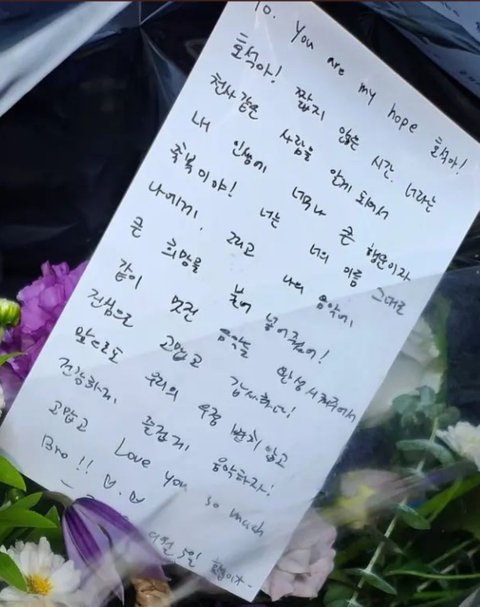 To. You are my hope 호석아!
호석아! 짧지 않은 시간. 너라는
천사같은 사람을 알게 되어서
내 인생에 너무나 큰 행운이자
축복이야! 너는 너의 이름 그대로
나에게, 그리고 나의 음악에,
큰 희망을 불어 넣어줬어!
같이 멋진 음악을 완성시켜주어서
진심으로 고맙고 감사하다!
앞으로도 우리의 우정 변치 않고
건강하게, 즐겁게, 음악하자!
고맙고 Love you so much
Bro!!
5일